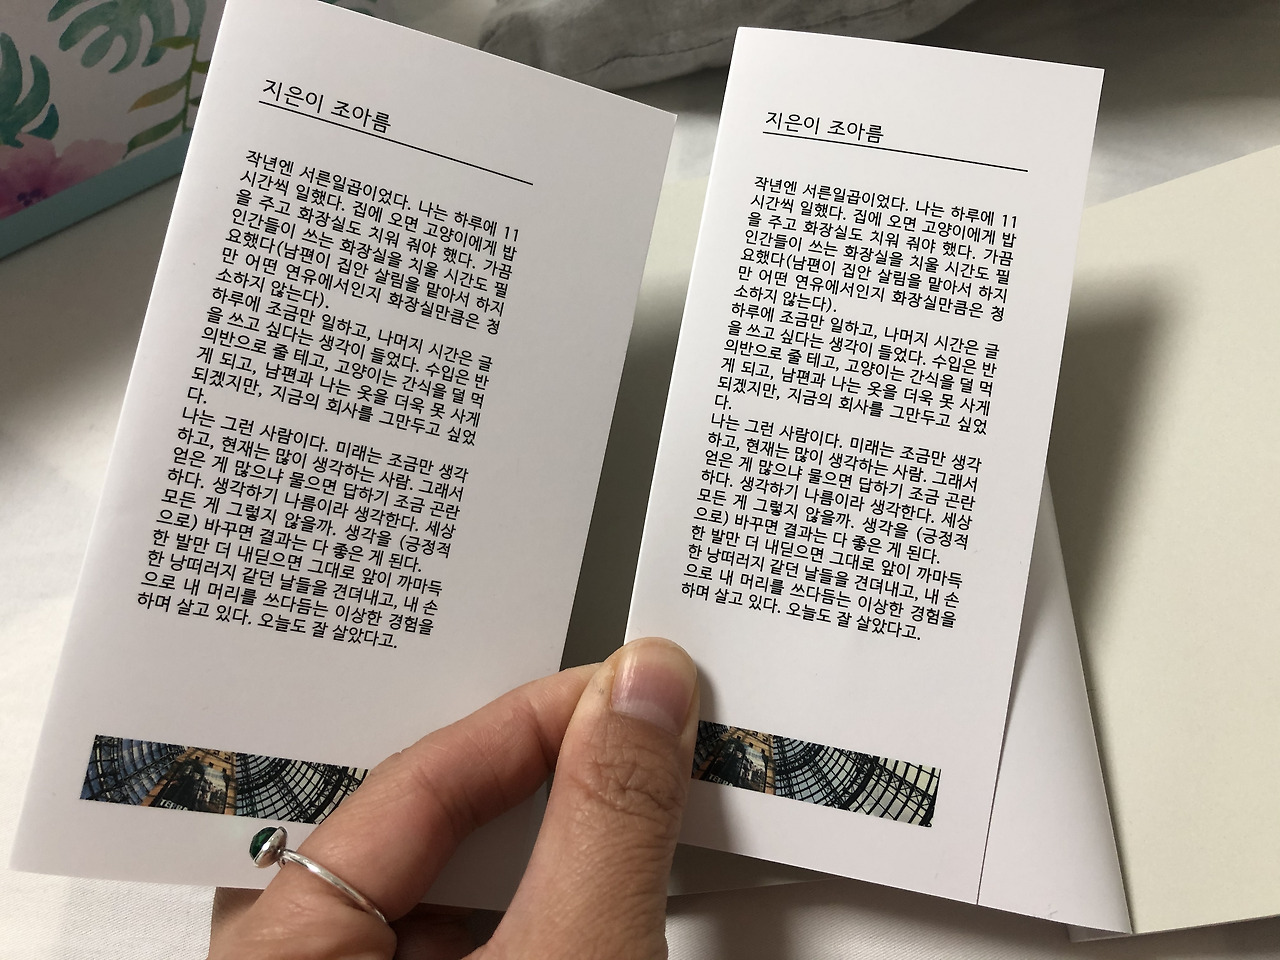 지은이 조아름
작년엔 서른일곱이었다. 나는 하루에 11
시간씩 일했다. 집에 오면 고양이에게 밥
을 주고 화장실도 치워 줘야 했다. 가끔
인간들이 쓰는 화장실을 치울 시간도 필
요했다(남편이 집안 살림을 맡아서 하지
만 어떤 연유에서인지 화장실만큼은 청
소하지 않는다).
하루에 조금만 일하고, 나머지 시간은 글
을 쓰고 싶다는 생각이 들었다. 수입은 반
의반으로 줄 테고, 고양이는 간식을 덜 먹
게 되고, 남편과 나는 옷을 더욱 못 사게
되겠지만, 지금의 회사를 그만두고 싶었
다.
나는 그런 사람이다. 미래는 조금만 생각
하고, 현재는 많이 생각하는 사람. 그래서
얻은 게 많으냐 물으면 답하기 조금 곤란
하다. 생각하기 나름이라 생각한다. 세상
모든 게 그렇지 않을까. 생각을 (긍정적
으로) 바꾸면 결과는 다 좋은 게 된다.
한 발만 더 내딛으면 그대로 앞이 까마득
한 낭떠러지 같던 날들을 견뎌내고, 내 손
으로 내 머리를 쓰다듬는 이상한 경험을
하며 살고 있다. 오늘도 잘 살았다고.
지은이 조아름
작년엔 서른일곱이었다. 나는 하루에 11
시간씩 일했다. 집에 오면 고양이에게 밥
을 주고 화장실도 치워 줘야 했다. 가끔
인간들이 쓰는 화장실을 치울 시간도 필
요했다(남편이 집안 살림을 맡아서 하지
만 어떤 연유에서인지 화장실만큼은 청
소하지 않는다).
하루에 조금만 일하고, 나머지 시간은 글
을 쓰고 싶다는 생각이 들었다. 수입은 반
의반으로 줄 테고, 고양이는 간식을 덜 먹
게 되고, 남편과 나는 옷을 더욱 못 사게
되겠지만, 지금의 회사를 그만두고 싶었
다.
나는 그런 사람이다. 미래는 조금만 생각
하고, 현재는 많이 생각하는 사람. 그래서
얻은 게 많으냐 물으면 답하기 조금 곤란
하다. 생각하기 나름이라 생각한다. 세상
모든 게 그렇지 않을까. 생각을 (긍정적
으로) 바꾸면 결과는 다 좋은 게 된다.
한 발만 더 내딛으면 그대로 앞이 까마득
한 낭떠러지 같던 날들을 견뎌내고, 내 손
으로 내 머리를 쓰다듬는 이상한 경험을
하며 살고 있다. 오늘도 잘 살았다고.